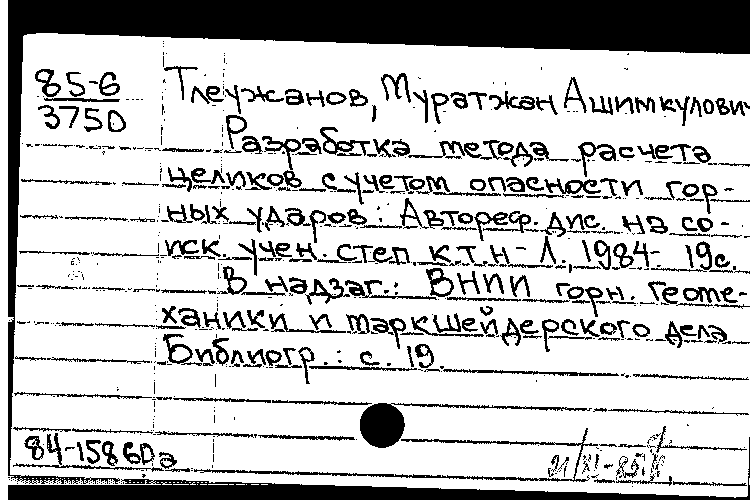 85-6
3750
Тлеужанов, Муратжан Ашимкулович
Разработка метода расчета
целиков с учетом опасности гор-
ных ударов: Автореф. дис. на со-
иск. учен. степ к.т.н - Л., 1984 - 19с.
В надзаг.: ВНИИ горн. геоме-
ханики и маркшейдерского дела
Библиогр.: с. 19.
84-15860а